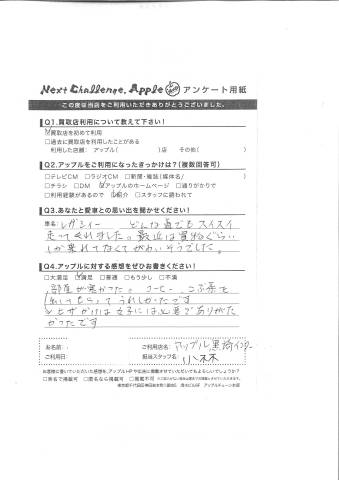 Next Challenge. Apple アンケート用紙
この度は当店をご利用いただきありがとうございました。
Q1.買取店利用について教えて下さい!
☑買取店を初めて利用
□過去に買取店を利用したことがある
利用した店舗: アップル( )店 その他( )
Q2.アップルをご利用になったきっかけは?(複数回答可)
□テレビCM □ラジオCM □新聞・雑誌(媒体名/ )
□チラシ □DM ☑アップルのホームページ □通りがかりで
□利用経験があるので ☑紹介 □スタッフに誘われて
Q3.あなたと愛車との思い出を聞かせてください!
車名: レガシィー どんな道でもスイスイ
走ってくれました。最近は買物ぐらい
しか乗れてなくてかわいそうでした。
Q4.アップルに対する感想をぜひお書きください!
□大満足 ☑満足 □普通 □もう少し □不満
部屋が寒かった。コーヒー、こぶ茶を
出してもらってうれしかったです
ヒザかけは女子には必要でありがた
かったです
お名前: ご利用店名: アップル黒埼インター
ご利用日: 担当スタッフ名: 小林
お客様に書いていただいた感想を、アップルHPや広告に掲載させていただいてもよろしいでしょうか?
□実名で掲載可 □匿名なら掲載可 □掲載不可